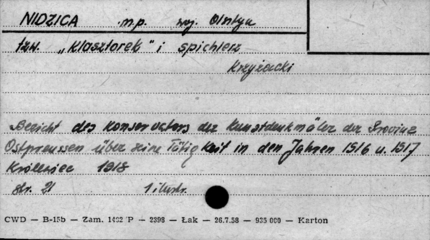 NIDZICA m.p. woj. Olsztyn
tzw. „Klasztorek" i spichlerz
krzyżacki
Bericht des Konservators der Kunstdenkmäler der Provinz
Ostpreussen über seine Tätigkeit in den Jahren 1916 u. 1917
Królewiec 1918
str. 21 1 ilustr.
CWD — B-15b — Zam. 1422 P — 2398 — Łak — 26.7.58 — 925 000 — Karton